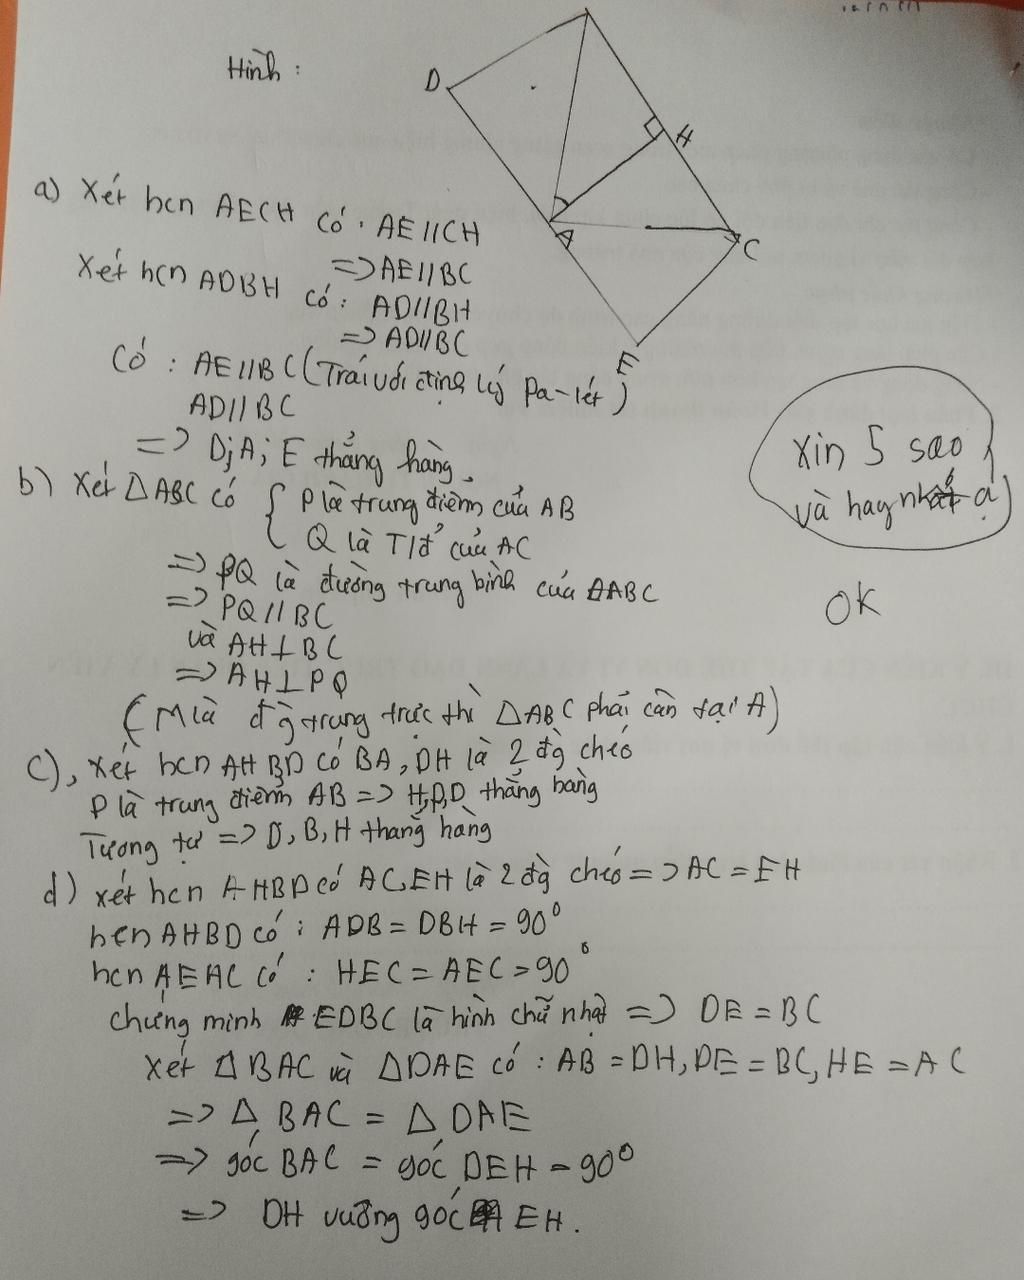 Hình :
D
H
A
C
E
a) Xét hcn AECH có : AE//CH
=> AE//BC
Xét hcn ADBH có : AD//BH
=> AD//BC
Có : AE//BC (Trái với định lý Pa-lét)
AD//BC
=> D;A;E thẳng hàng
b) Xét ΔABC có { P là trung điểm của AB
Q là T/đ của AC
=> PQ là đường trung bình của ΔABC
=> PQ//BC
và AH⊥BC
=> AH⊥PQ
(M là đg trung trực thì ΔABC phải cần tại A)
c), xét hcn AHBD có BA, DH là 2 đg chéo
P là trung điểm AB => H,P,D thẳng hàng
Tương tự => D, B, H thẳng hàng
d) xét hcn AHBD có AC, EH là 2 đg chéo => AC = EH
hcn AHBD có : ADB = DBH = 90°
hcn AEAC có : HEC = AEC = 90°
chứng minh EDBC là hình chữ nhật => DE = BC
Xét ΔBAC và ΔDAE có : AB = DH, DE = BC, HE = AC
=> Δ BAC = Δ DAE
=> góc BAC = góc DEH = 90°
=> DH vuông góc EH.
xin 5 sao
và hay nhất ạ
OK